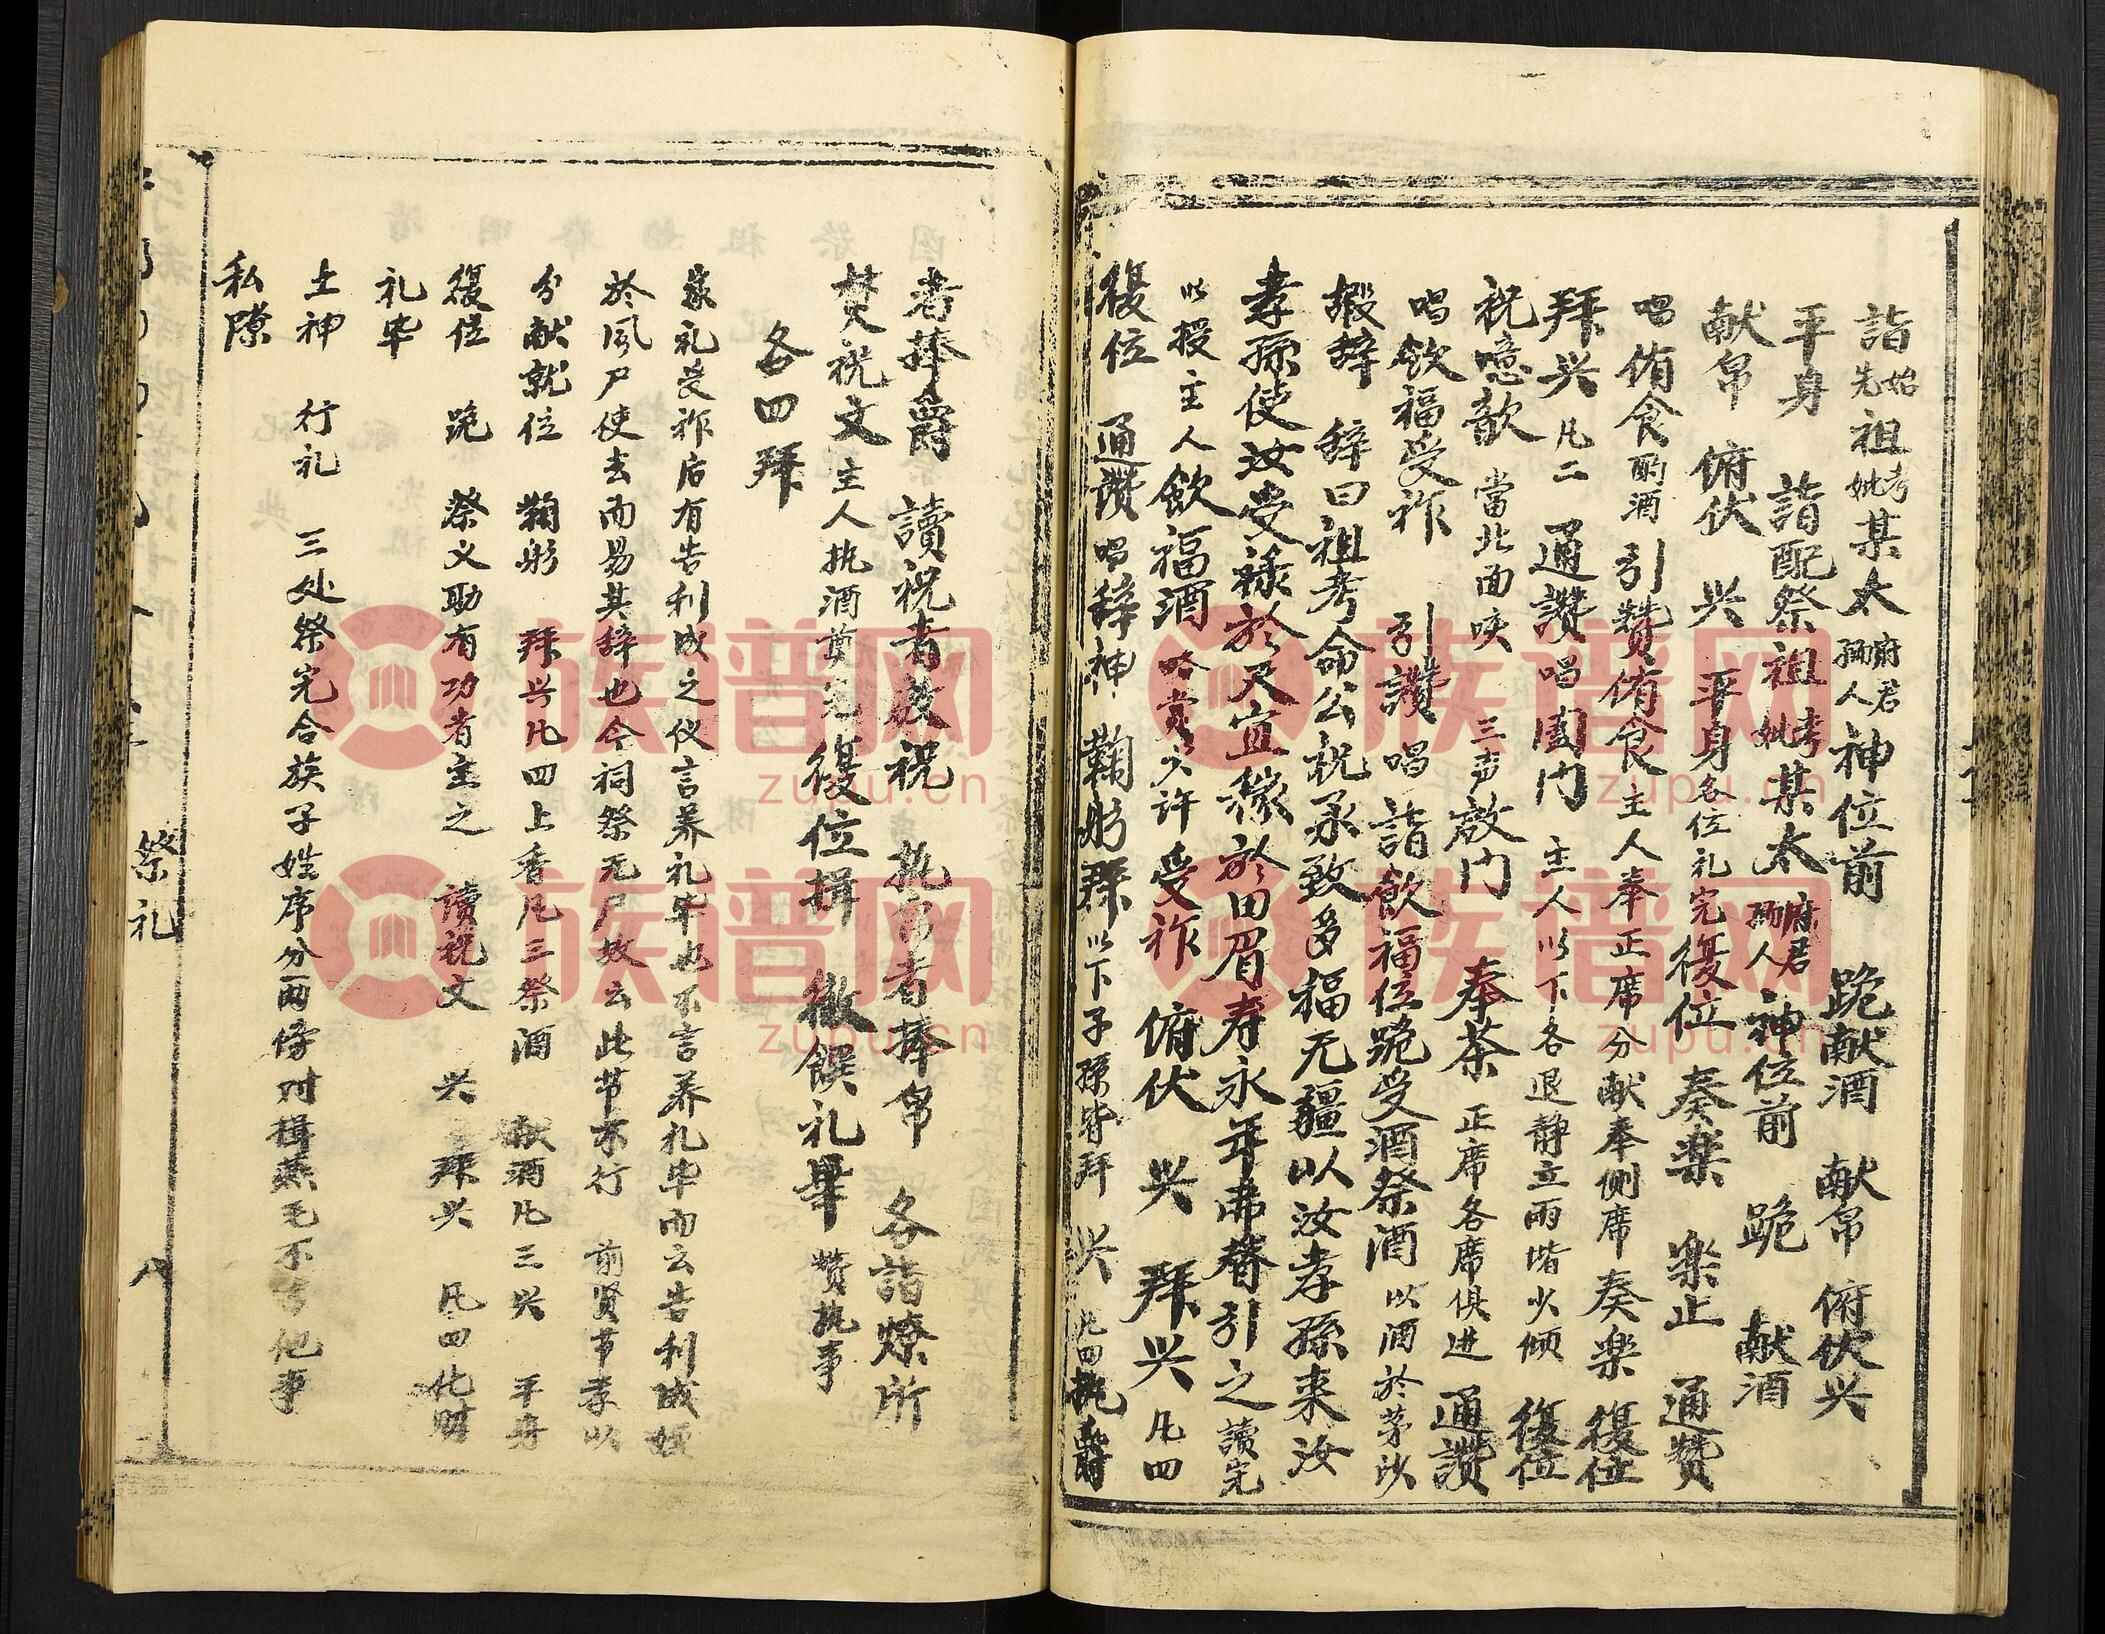 詣始先祖考妣某太府君孺人神位前 跪献酒 献帛 俯伏兴
平身 詣配祭祖考妣某太府君孺人神位前 跪 献酒
献帛 俯伏 兴 平身各位礼完復位 奏楽 楽止 通赞
唱侑食酌酒 引赞侑食主人奉正席分献奉侧席 奏楽 復位
拜兴凡二 通讚唱闔门 主人以下各退静立両堦少倾 復位
祝噫歆 當北面咲 三声啟门 奉茶 正席各席俱进 通讚
唱飲福受祚 引讚唱詣飲福位跪受酒祭酒以酒於茅沙
嘏辞 辞曰祖考命公祝承致多福无疆以汝孝孫来汝
孝孫使汝受禄於天宜稼於田眉寿永年弗替引之讀完
以授主人飲福酒略嘗少许 受祚 俯伏 兴 拜兴凡四
復位 通讚唱辞神 鞠躬拜以下子孫皆拜 兴 凡四执爵
者捧爵 讀祝者放祝 执帛者捧帛 各詣燎所
焚祝文主人执酒奠完復位揖 徹饌礼畢 赞执事
各四拜
家礼受祚后有告利成之仪言养礼毕也不言养礼毕而云告利成嫌
於讽尸使去而易其辞也今祠祭无尸故云此节不行 前贤节孝以
分献就位 鞠躬 拜兴凡四上香凡三祭酒 献酒凡三兴 平身
復位 跪 祭义助有功者主之 讀祝文 兴 拜兴 凡四化财
礼毕
土神 行礼 三处祭完合族子姓序分両傍对揖燕毛不言他事
私隙
祭礼
八
族谱网
zupu.cn
族谱网
zupu.cn
族谱网
zupu.cn
族谱网
zupu.cn